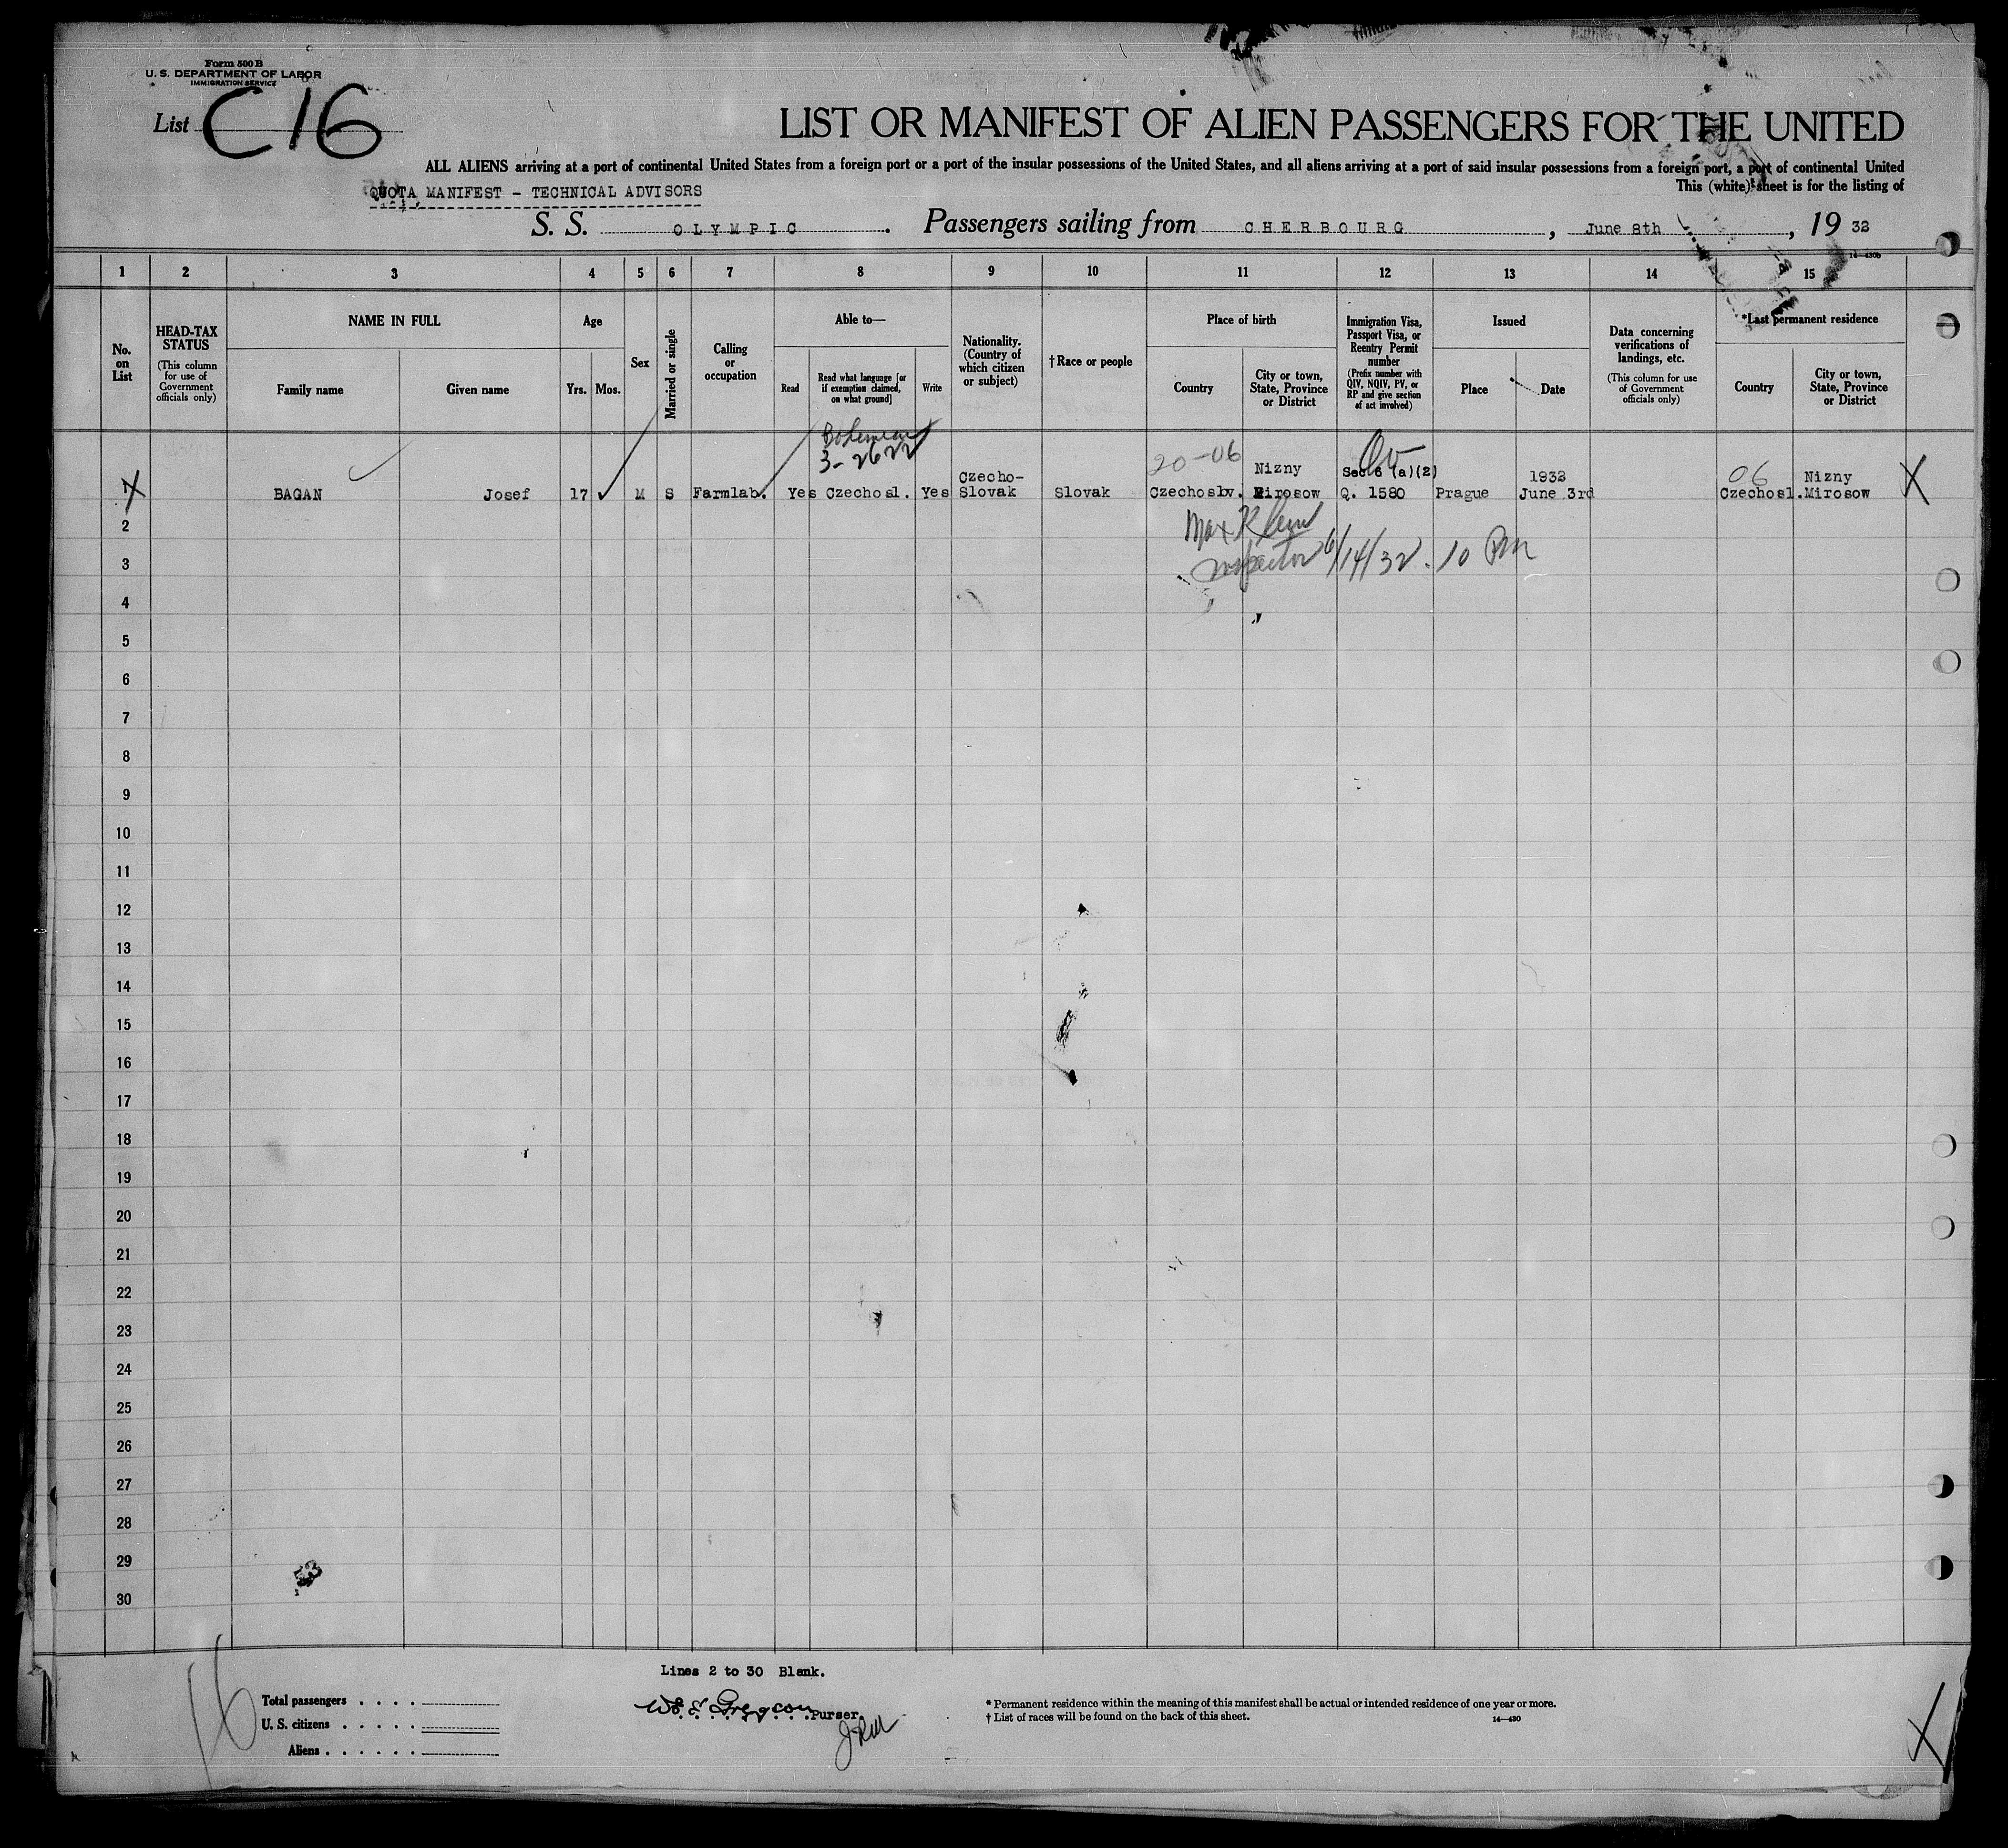 Form 500 B
U. S. DEPARTMENT OF LABOR
IMMIGRATION SERVICE
List C16
LIST OR MANIFEST OF ALIEN PASSENGERS FOR THE UNITED
ALL ALIENS arriving at a port of continental United States from a foreign port or a port of the insular possessions of the United States, and all aliens arriving at a port of said insular possessions from a foreign port, a port of continental United
This (white) sheet is for the listing of
QUOTA MANIFEST - TECHNICAL ADVISORS
S. S. OLYMPIC. Passengers sailing from CHERBOURG, June 8th, 19 32
14-430b
1 2 3 4 5 6 7 8 9 10 11 12 13 14 15
No. on List
HEAD-TAX STATUS
(This column for use of Government officials only)
NAME IN FULL
Family name
Given name
Age
Yrs. Mos.
Sex
Married or single
Calling or occupation
Able to—
Read
Read what language [or if exemption claimed, on what ground]
Write
Nationality. (Country of which citizen or subject)
†Race or people
Place of birth
Country
City or town, State, Province or District
Immigration Visa, Passport Visa, or Reentry Permit number
(Prefix number with QIV, NQIV, PV, or RP and give section of act involved)
Issued
Place
Date
Data concerning verifications of landings, etc.
(This column for use of Government officials only)
*Last permanent residence
Country
City or town, State, Province or District
Bohemian
3-2622
20-06
Qv
06
Czecho- Nizny Sec 6 (a)(2) 1932 Nizny
1 X BAGAN Josef 17 M S Farmlab. Yes Czechosl. Yes Slovak Slovak Czechoslv. Mirosow Q. 1580 Prague June 3rd Czechosl. Mirosow X
Max Klein
Inspector 6/14/32. 10 PM
2
3
4
5
6
7
8
9
10
11
12
13
14
15
16
17
18
19
20
21
22
23
24
25
26
27
28
29
53
30
Lines 2 to 30 Blank.
16
Total passengers . . . .
U. S. citizens . . . . .
Aliens . . . . . .
Purser.
* Permanent residence within the meaning of this manifest shall be actual or intended residence of one year or more.
† List of races will be found on the back of this sheet.
14-430
X